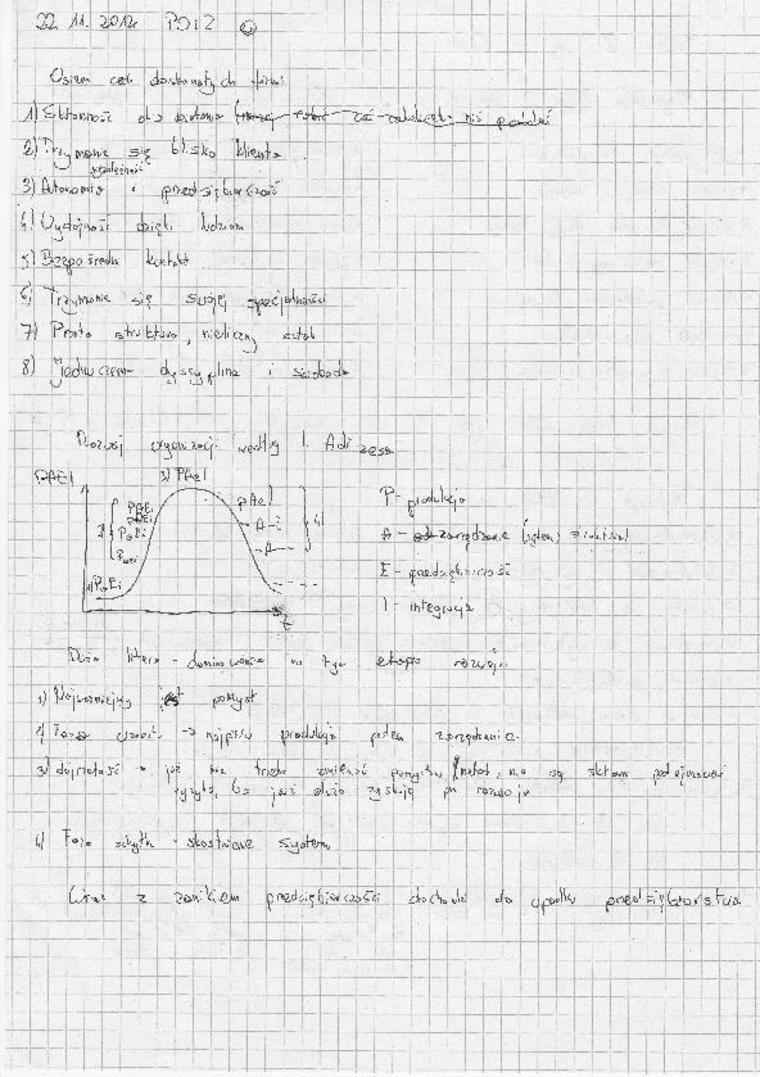 22 11. 2012 POiZ
Osiem cech doskonałych firm:
1) Skłonność do działania robić coś niż
2) Trzymanie się blisko klienta
niezależność
3) Autonomia i przedsiębiorczość
4) Wydajność dzięki ludziom
5) Bezpośredni kontakt
6) Trzymanie się swojej specjalności
7) Prosta struktura, nieliczny sztab
8) Jednoczesna dyscyplina i swoboda
Rozwój organizacji według I. Adizesa
PAEI
3) PAeI
PAEi
PaEi
pAeI
A-i
-A--
4)
1) PaEi
t
P - produkcja
A - zarządzanie (system)
E - przedsiębiorczość
I - integracja
Duża litera - dominowanie na tym etapie rozwoju
1) Najważniejszy jest pomysł
2) Faza → najpierw produkcja potem zarządzanie
3) dojrzałość → już nie trzeba zmieniać metod, nie są skłonni podejmować
ryzyka, bo już dużo zyskują
4) Faza schyłku - skostnienie systemu
Wraz z zanikiem przedsiębiorczości dochodzi do upadku przedsiębiorstwa